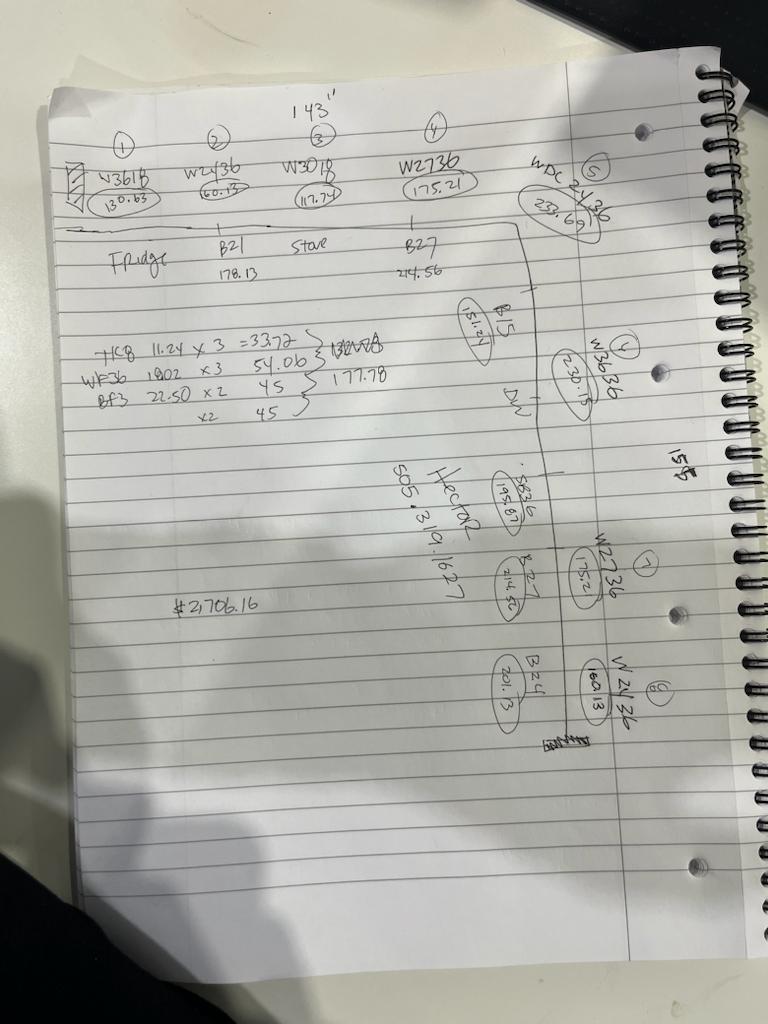 143"
① ② ③ ④
W3618 W2436 W3018 W2736
130.63 60.13 117.74 175.21
WDC 2436 ⑤
233.69
Fridge B21 Stove B27
178.13 214.56
B15
151.24
W3636
230.15
DW
TK8 11.24 x 3 = 33.72
WF36 1802 x 3 54.06
BF3 22.50 x 2 45
x2 45
177.78
155
SB36
195.87
Hector
505.319.1627
B27
214.56
W2736 ⑦
175.21
$2,706.16
B24
201.13
W2436 ⑧
160.13